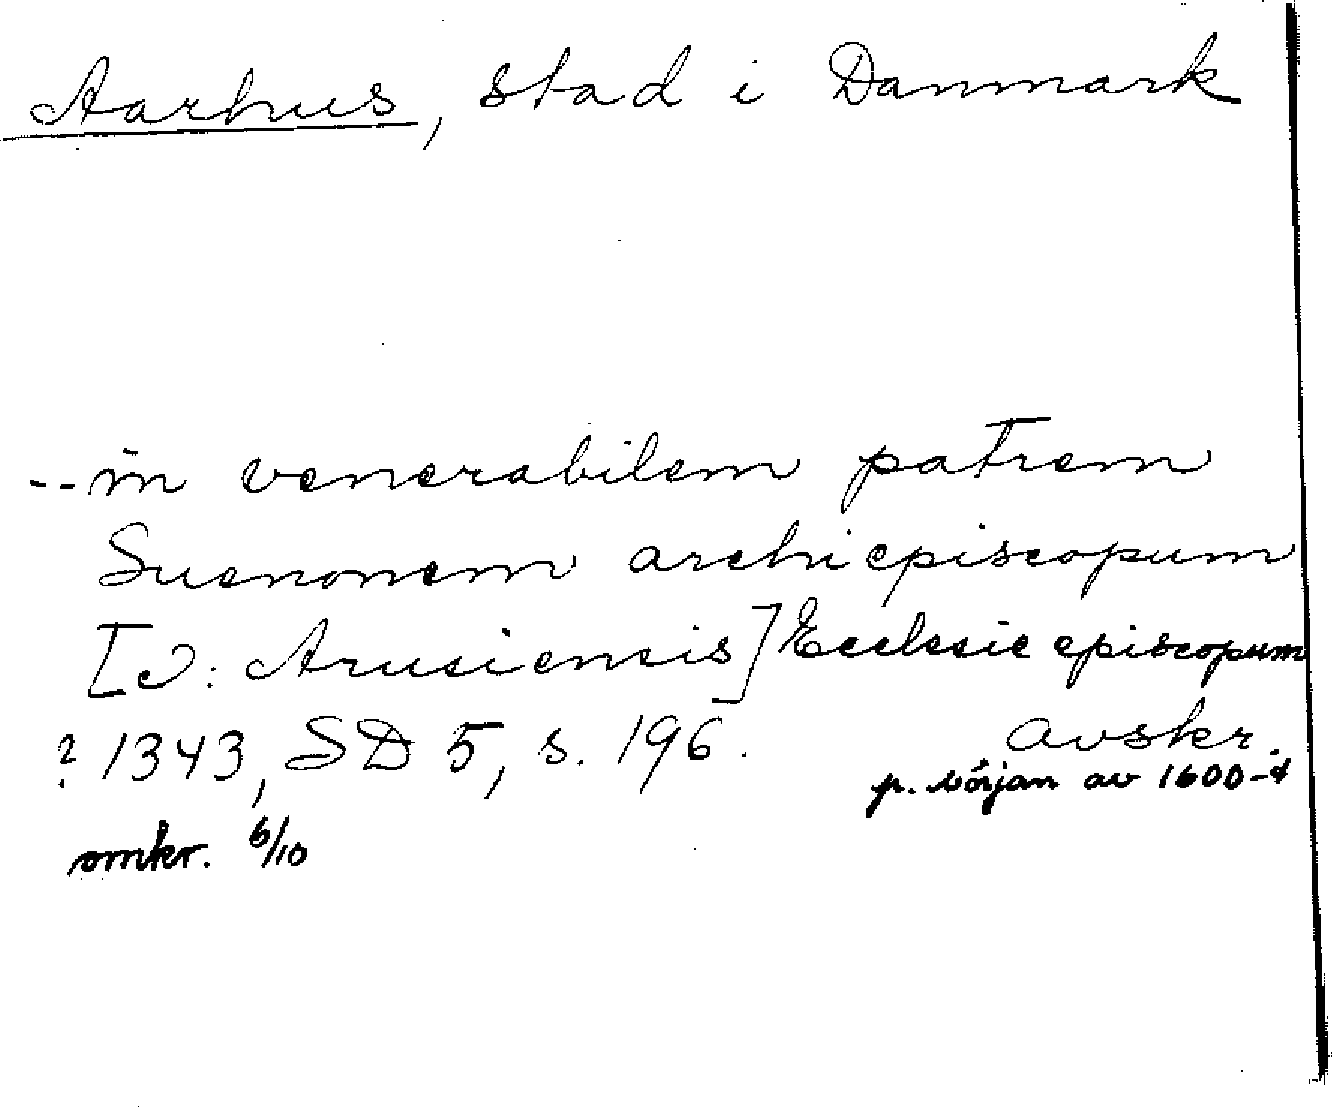 Aarhus, stad i Danmark
-- in venerabilem patrem
Suenonem archiepiscopum
[ɔ: Arusiensis] Ecclesie episcopum
? 1343, SD 5, s. 196. avskr.
p. början av 1600-t
omkr. 6/10